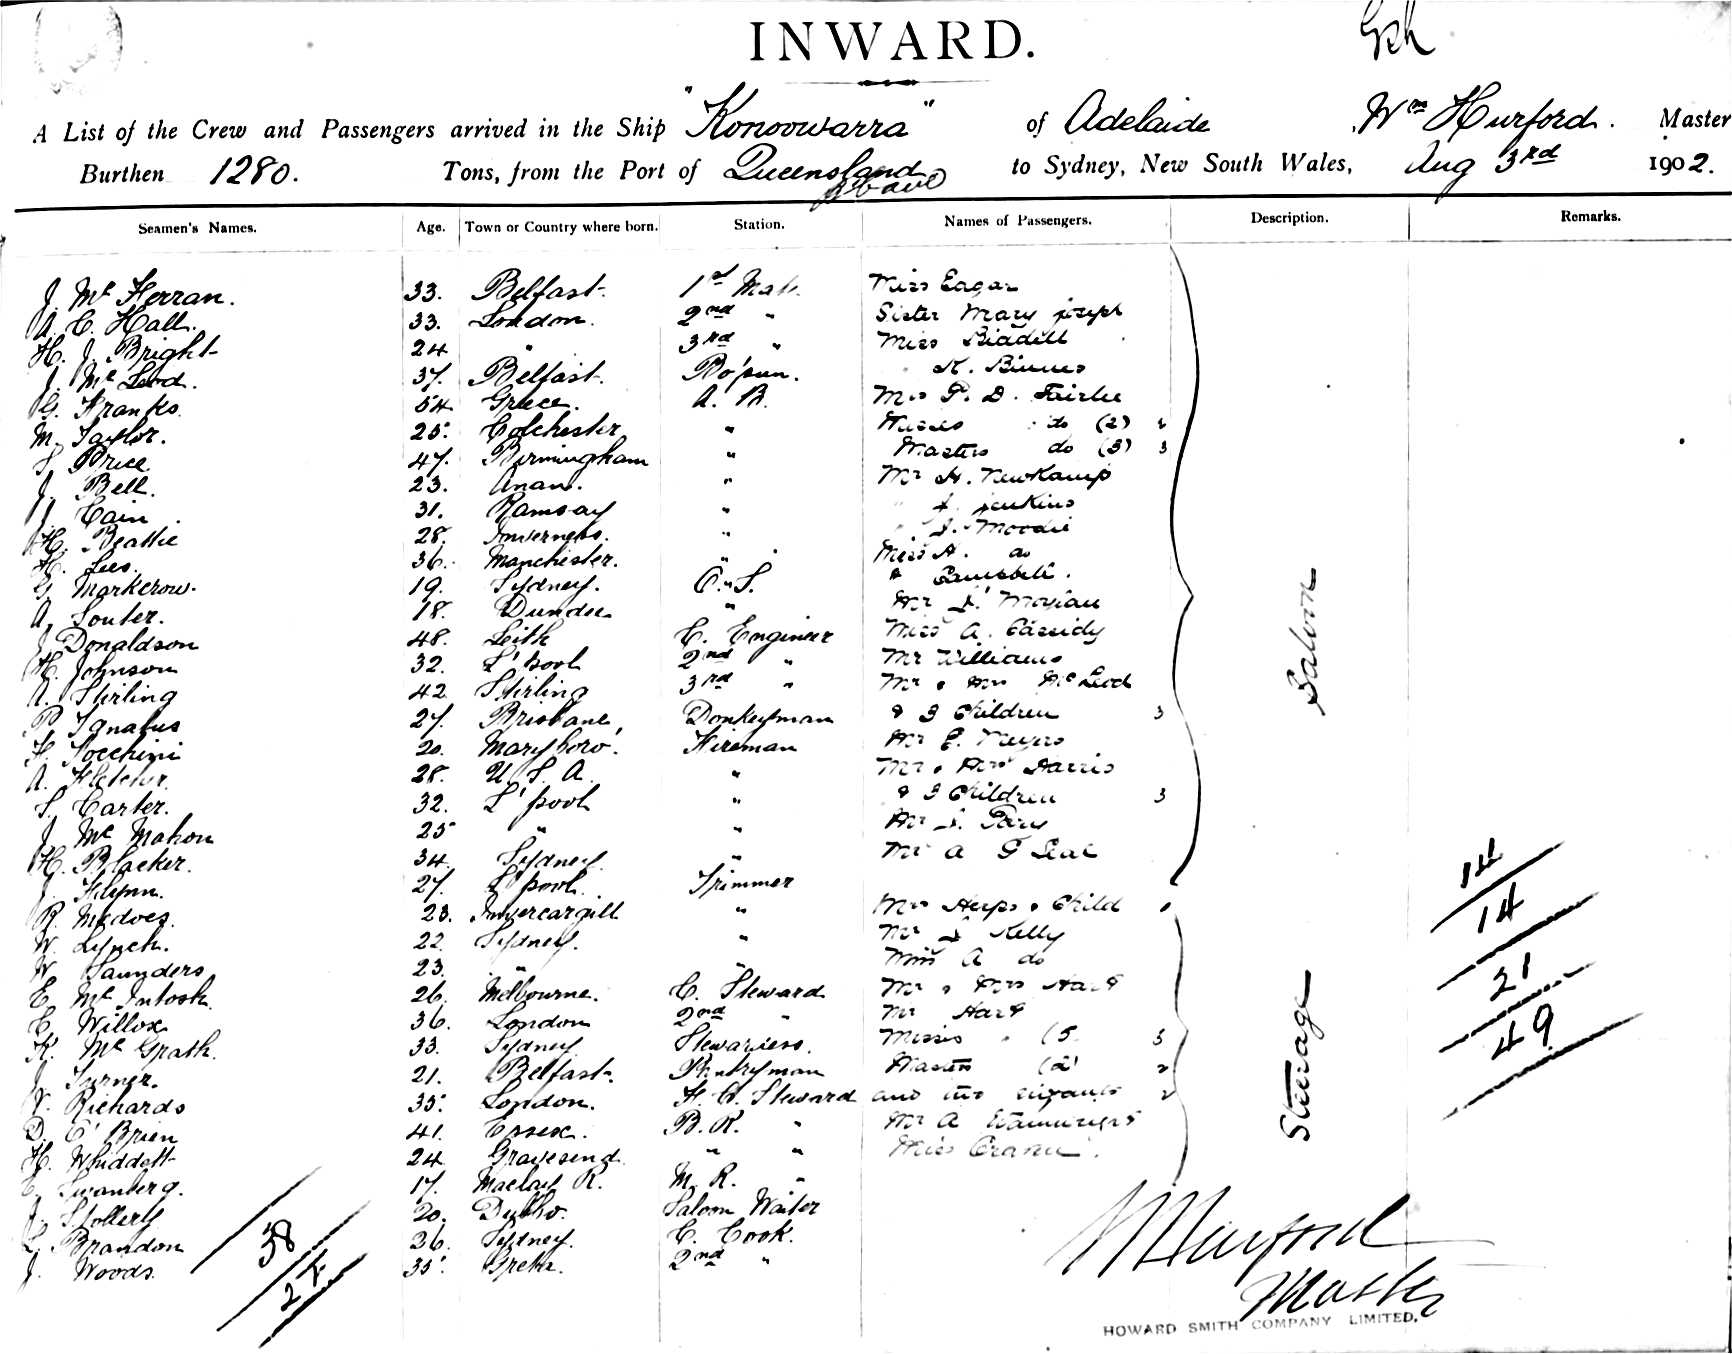 INWARD.
A List of the Crew and Passengers arrived in the Ship "Konoowarra" of Adelaide Wm Hurford. Master
Burthen 1280. Tons, from the Port of Queensland to Sydney, New South Wales, Aug 3rd 1902.
Seamen's Names. Age. Town or Country where born. Station. Names of Passengers. Description. Remarks.
J. Mc Ferran. 33. Belfast. 1st Mate. Miss Eagar
A. C. Hall. 33. London. 2nd " Sister Mary Joseph
H. J. Bright 24 " 3rd " Miss Liddell
J. Mc Leod. 37. Belfast. Bo'sun. K. Binnes
G. Franks. 54 Greece. A. B. Mrs P. D. Fairlie
M. Taylor. 25. Colchester " Misses do (2) 2
S. Price 47. Birmingham " Masters do (3) 3
J. Bell. 23. Anan. " Mr H. Newkamp
J. Cain. 31. Ramsay " J. Jenkins
H. Beattie 28. Inverness. " J. Moodie
H. Lees. 36. Manchester. " Miss A. do
G. Markerow. 19. Sydney. O. S. " Campbell.
A. Souter. 18. Dundee " Mr J.
J. Donaldson 48. Leith C. Engineer Miss A. Cassidy
H. Johnson 32. L'pool 2nd " Mr Williams
A. Stirling 42 Stirling 3rd " Mr & Mrs McLeod
P. Ignatus 27. Brisbane, Donkeyman & 3 Children 3
F. Socchini 20. Maryboro'. Fireman Mr E. Meyers
A. Fletcher. 28. U. S. A. " Mr & Mrs Harris
S. Carter. 32. L'pool " & 3 Children 3
J. Mc Mahon 25 " " Mr J.
H. Blacker. 34 Sydney " Mr A G Seal
J. Flynn. 27. L'pool. Trimmer
R. Medoes. 23. Invercargill " Mrs Heeps & Child
W. Lynch. 22. Sydney. " Mr J Kelly
W. Saunders 23. " " Miss A do
E. Mc Intosh. 26. Melbourne. C. Steward Mr & Mrs Hart
C. Willox 36. London 2nd " Mr Hart
K. Mc Grath. 33. Sydney Stewardess. Misses " (5
J. Turner. 21. Belfast. Pantryman Masters (2) 2
W. Richards 35. London. F. C. Steward and two 2
D. O'Brien 41. Essex. B. R. " Mr A Wainwright
H. Whiddett 24 Gravesend " " Miss
C. Swanberg. 17. Maclay R. M. R. "
J. Stollery 20. Saloon Waiter
L. Brandon 26. Sydney. C. Cook.
J. Woods. 35. 2nd "
Saloon
Steerage
14
21
49
38
24
W Hurford
Master
HOWARD SMITH COMPANY LIMITED.